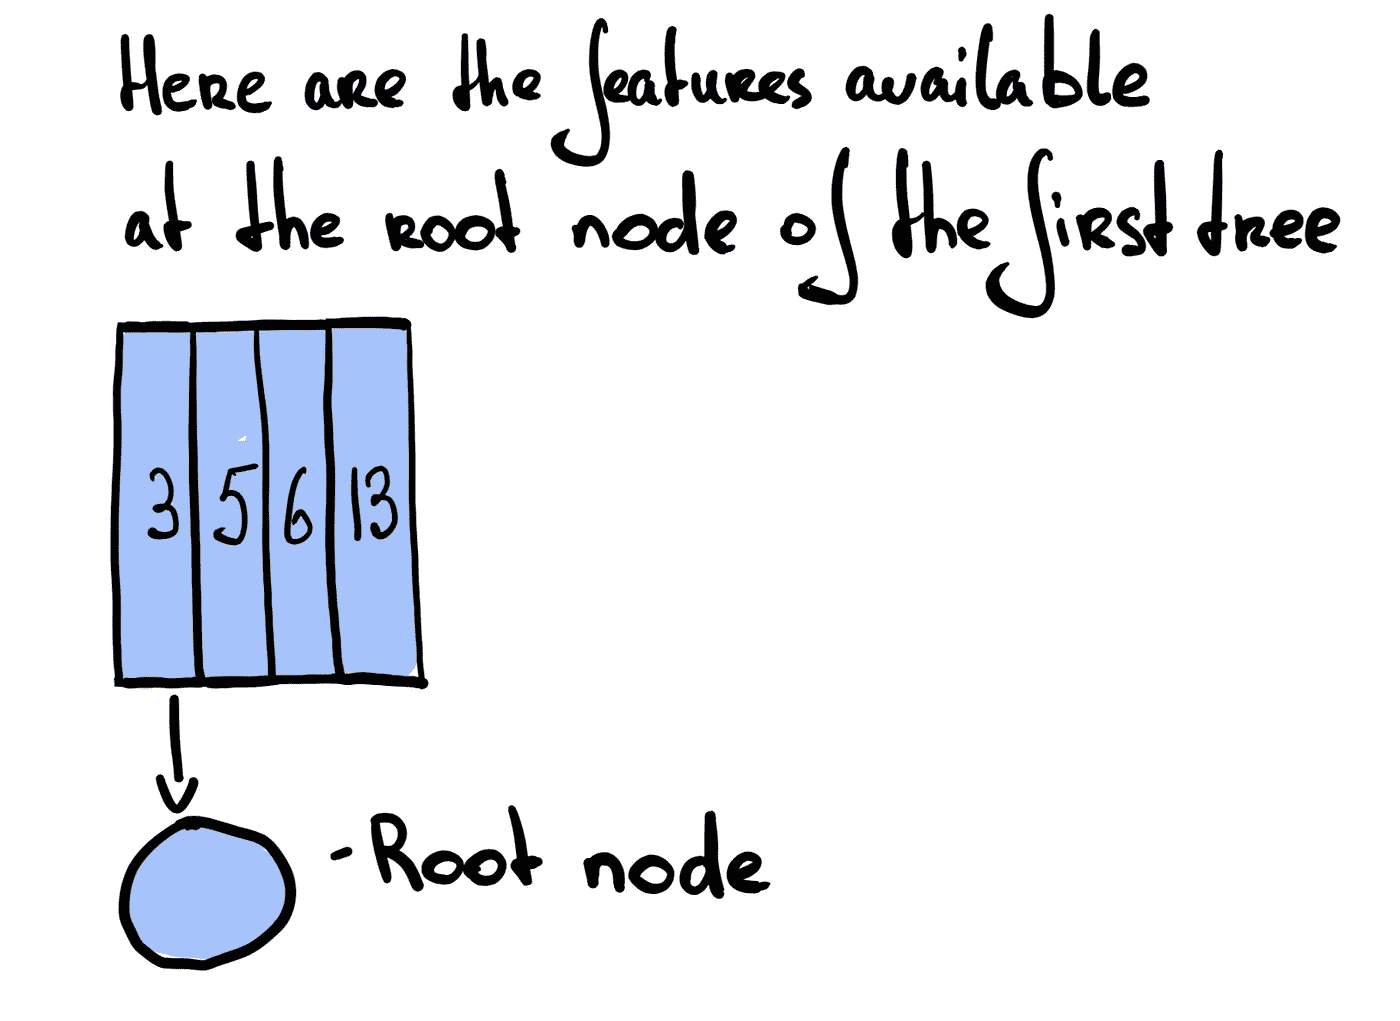 Here are the features available
at the root node of the first tree
3 5 6 13
- Root node